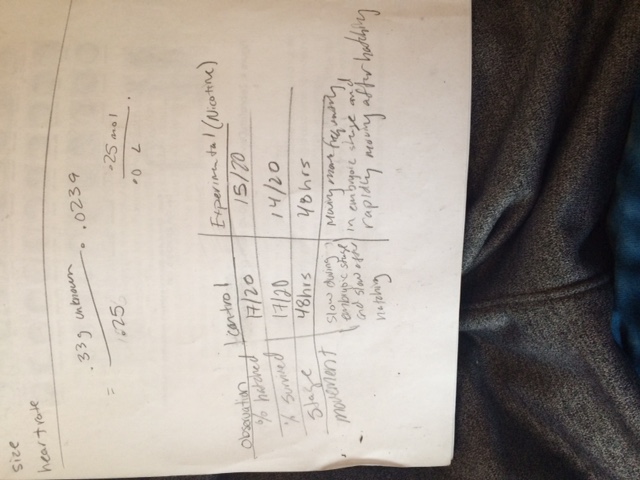 size
heart rate
.33g unknown . .0239
= .25
.25 mol
.0 L
Observation Control Experimental (Nicotine)
% hatched 17/20 15/20
% survived 17/20 14/20
Stage 48hrs 48hrs
movement
Slow during
embryonic stage
and slow after
hatching
in embryonic stage and
rapidly moving after hatching